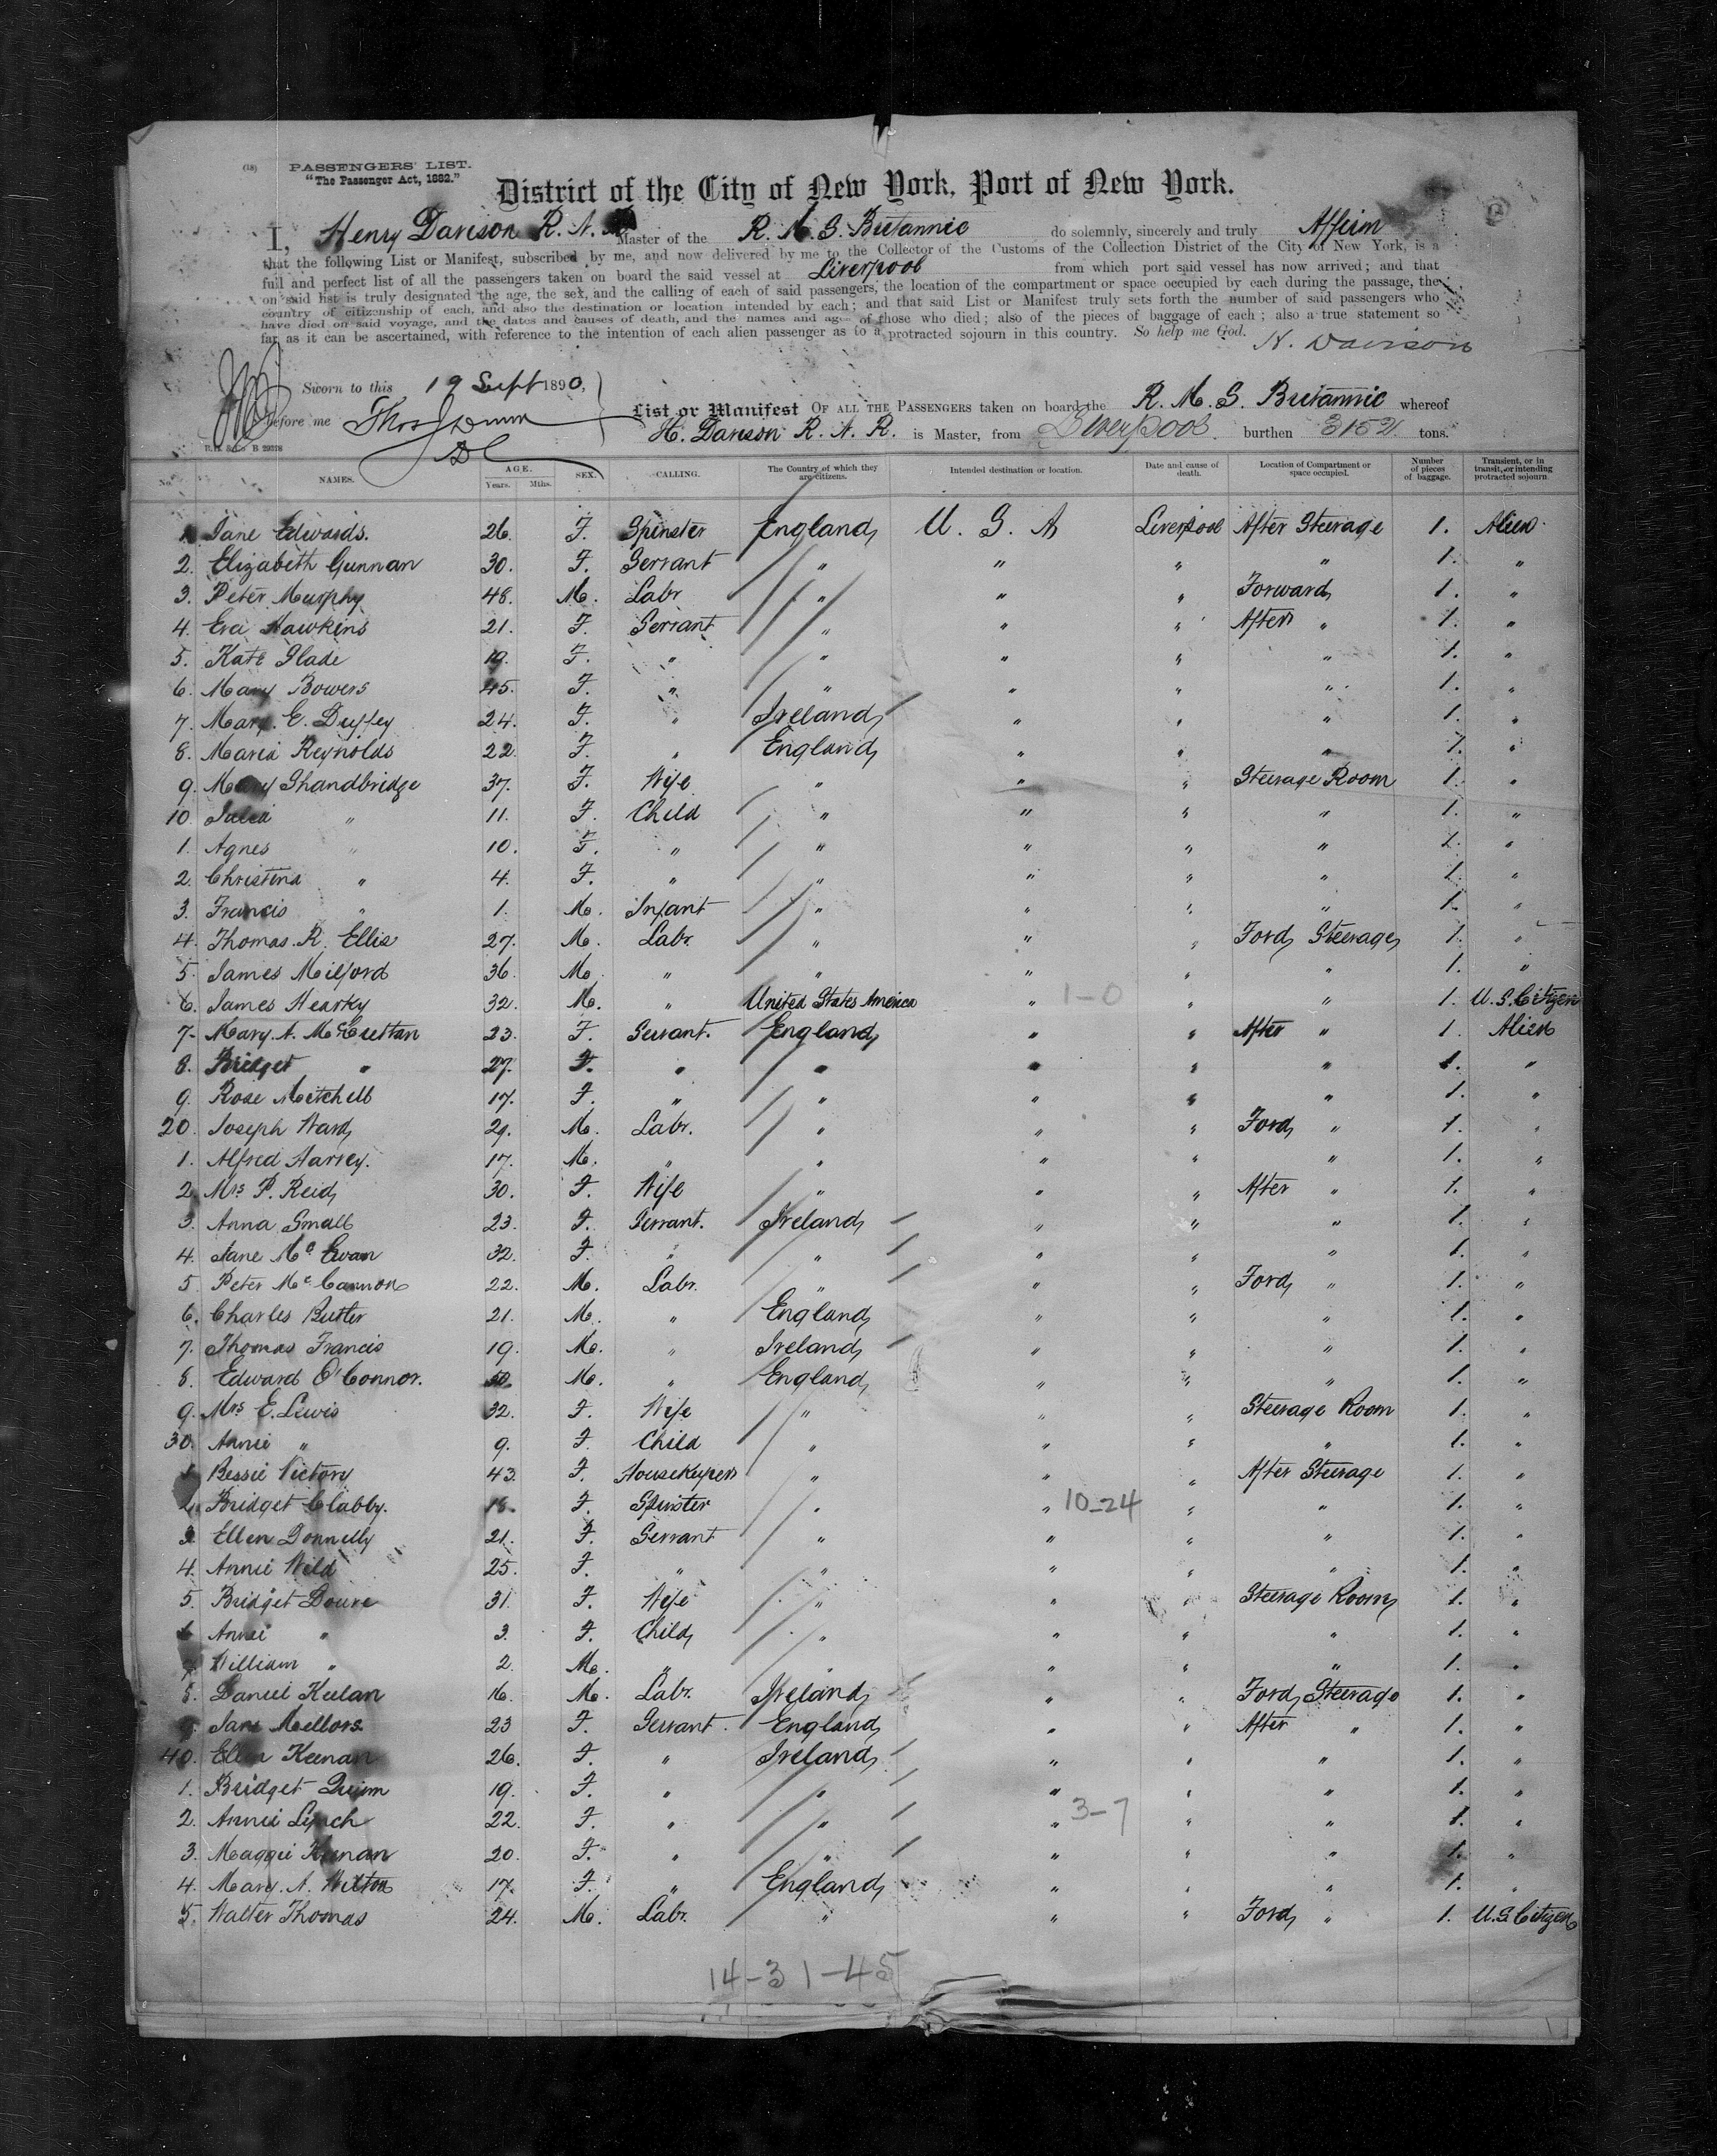 (18) PASSENGERS' LIST.
"The Passenger Act, 1882."
District of the City of New York, Port of New York.
I, Henry Davison R. N. Master of the R. M. S. Britannic do solemnly, sincerely and truly Affirm
that the following List or Manifest, subscribed by me, and now delivered by me to the Collector of the Customs of the Collection District of the City of New York, is a
full and perfect list of all the passengers taken on board the said vessel at Liverpool from which port said vessel has now arrived; and that
on said list is truly designated the age, the sex, and the calling of each of said passengers, the location of the compartment or space occupied by each during the passage, the
country of citizenship of each, and also the destination or location intended by each; and that said List or Manifest truly sets forth the number of said passengers who
have died on said voyage, and the dates and causes of death, and the names and ages of those who died; also of the pieces of baggage of each; also a true statement so
far as it can be ascertained, with reference to the intention of each alien passenger as to a protracted sojourn in this country. So help me God.
H. Davison
Sworn to this 19 Sept 1890,
before me
List or Manifest OF ALL THE PASSENGERS taken on board the R. M. S. Britannic whereof
H. Davison R. N. R. is Master, from Liverpool burthen 3152 tons.
No. NAMES. AGE. Years. Mths. SEX. CALLING. The Country of which they are citizens. Intended destination or location. Date and cause of death. Location of Compartment or space occupied. Number of pieces of baggage. Transient, or in transit, or intending protracted sojourn
1 Jane Edwards. 26. F. Spinster England U. S. A Liverpool After Steerage 1. Alien
2. Elizabeth Gunnan 30. F. Servant " " " " 1. "
3. Peter Murphy 48. M. Labr " " " Forward 1. "
4. Eva Hawkins 21. F. Servant " " " After " 1. "
5. Kate Slade 19. F. " " " " " 1. "
6. Mary Bowers 45. F. " " " " " 1. "
7. Mary E. Duffey 24. F. " Ireland " " " 1. "
8. Maria Reynolds 22. F. " England " " " 1. "
9. Mary Shandbridge 37. F. Wife " " " Steerage Room 1. "
10. Julia " 11. F. Child " " " " 1. "
1. Agnes " 10. F. " " " " " 1. "
2. Christina " 4. F. " " " " " 1. "
3. Francis " 1. M. Infant " " " " 1. "
4. Thomas R. Ellis 27. M. Labr. " " " Ford Steerage 1. "
5. James Milford 36. M. " " " " " 1. "
6. James Hearky 32. M. " United States America " 1-0 " " 1. U. S. Citizen
7. Mary. A. 23. F. Servant. England " " After " 1. Alien
8. Bridget " 27. F. " " " " " 1. "
9. Rose Mitchell 17. F. " " " " " 1. "
20. Joseph Ward 29. M. Labr. " " " Ford " 1. "
1. Alfred Harvey. 17. M. " " " " " 1. "
2. Mrs P. Reid 30. F. Wife " " " After " 1. "
3. Anna Small 23. F. Servant. Ireland " " " 1. "
4. Jane Mc Ewan 32. F. " " " " " 1. "
5. Peter Mc Cannon 22. M. Labr. " " " Ford " 1. "
6. Charles Butler 21. M. " England " " " 1. "
7. Thomas Francis 19. M. " Ireland " " " 1. "
8. Edward O'Connor. M. " England " " " 1. "
9. Mrs E. Lewis 32. F. Wife " " " Steerage Room 1. "
30. Annie " 9. F. Child " " " " 1. "
1 Bessie Victory 43. F. Housekeeper " " " After Steerage 1. "
2. Bridget Clabby. 18. F. Spinster " " 10-24 " " 1. "
3 Ellen Donnelly 21. F. Servant " " " " 1. "
4. Annie Wild 25. F. " " " " " 1. "
5. Bridget Doure 31. F. Wife " " " Steerage Room 1. "
6 Annie " 3. F. Child " " " " 1. "
7 William " 2. M. " " " " " 1. "
8. Daniel Keelan 16. M. Labr. Ireland " " Ford Steerage 1. "
9. Jane Mellors. 23 F. Servant. England " " After " 1. "
40. Ellen Keenan 26. F. " Ireland " " " 1. "
1. Bridget Quinn 19. F. " " " " " 1. "
2. Annie Lynch 22. F. " " " 3-7 " " 1. "
3. Maggie Keenan 20. F. " " " " " 1. "
4. Mary. A. Wilton 17. F. " England " " " 1. "
5. Walter Thomas 24. M. Labr. " " " Ford " 1. U.S Citizen
14-31-45